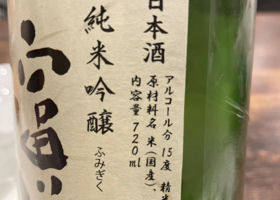 日本酒
純米吟醸
ふみぎく
アルコール分 15度 精米
原材料名 米(国産)、
内容量 720ml